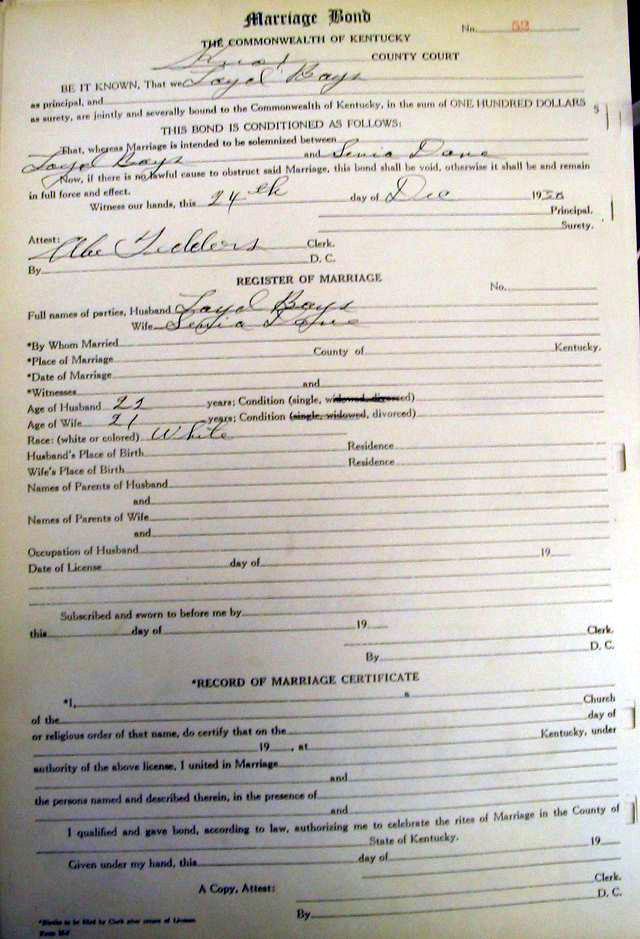 Marriage Bond
No. 52
THE COMMONWEALTH OF KENTUCKY
Knox COUNTY COURT
BE IT KNOWN, That we Loyd Bays
as principal, and
as surety, are jointly and severally bound to the Commonwealth of Kentucky, in the sum of ONE HUNDRED DOLLARS
THIS BOND IS CONDITIONED AS FOLLOWS:
That, whereas Marriage is intended to be solemnized between
Loyd Bays and Senia Dane
Now, if there is no lawful cause to obstruct said Marriage, this bond shall be void, otherwise it shall be and remain
in full force and effect.
Witness our hands, this 24th day of Dec 19
Principal.
Surety.
Attest:
Abe Clerk.
By D. C.
REGISTER OF MARRIAGE
No.
Full names of parties, Husband Loyd Bays
Wife Senia Dane
*By Whom Married
*Place of Marriage County of Kentucky.
*Date of Marriage
*Witnesses and
Age of Husband 22 years; Condition (single, widowed, divorced)
Age of Wife 21 years; Condition (single, widowed, divorced)
Race: (white or colored) White
Husband's Place of Birth Residence
Wife's Place of Birth Residence
Names of Parents of Husband
and
Names of Parents of Wife
and
Occupation of Husband
Date of License day of 19
Subscribed and sworn to before me by
this day of 19
Clerk.
By D. C.
*RECORD OF MARRIAGE CERTIFICATE
*I, a Church
of the day of
or religious order of that name, do certify that on the Kentucky, under
19 , at
authority of the above license, I united in Marriage
and
the persons named and described therein, in the presence of
and
I qualified and gave bond, according to law, authorizing me to celebrate the rites of Marriage in the County of
State of Kentucky.
Given under my hand, this day of 19
Clerk.
A Copy, Attest: D. C.
By
*Blanks to be filled by Clerk after return of License